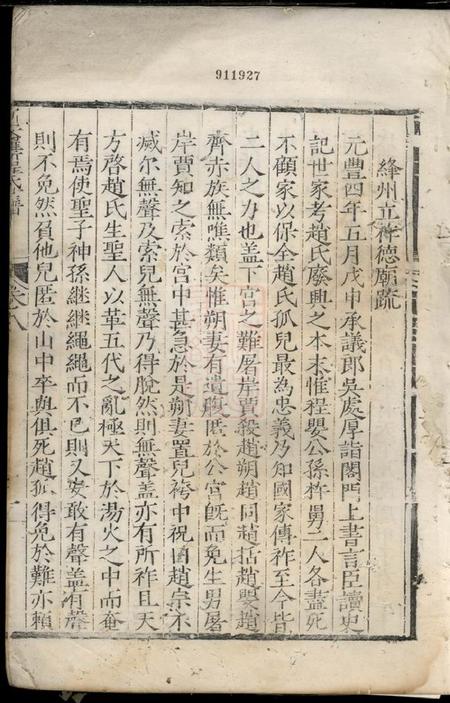 911927
絳州立祚德廟䟽
元豐四年五月戊申承議郎吳處厚詣閣門上書言臣讀史
記世家考趙氏廢興之本末惟程嬰公孫杵臼二人各盡死
不顧家以保全趙氏孤兒最為忠義乃知國家傳祚至今皆
二人之力也盖下宮之難屠岸賈殺趙朔趙同趙括趙嬰趙
齊赤族無噍類矣惟朔妻有遺腹匿於公宮旣而免生男屠
岸賈知之索於宮中甚急於是朔妻置兒袴中祝曰趙宗不
滅尔無聲及索兒無聲乃得脫然則無聲盖亦有所祚且天
方啓趙氏生聖人以革五代之亂極天下於湯火之中而奄
有焉使聖子神孫継継繩繩而不已則又安敢有聲盖有聲
則不免然負他兒匿於山中卒與俱死趙孤得免於難亦賴
卷八